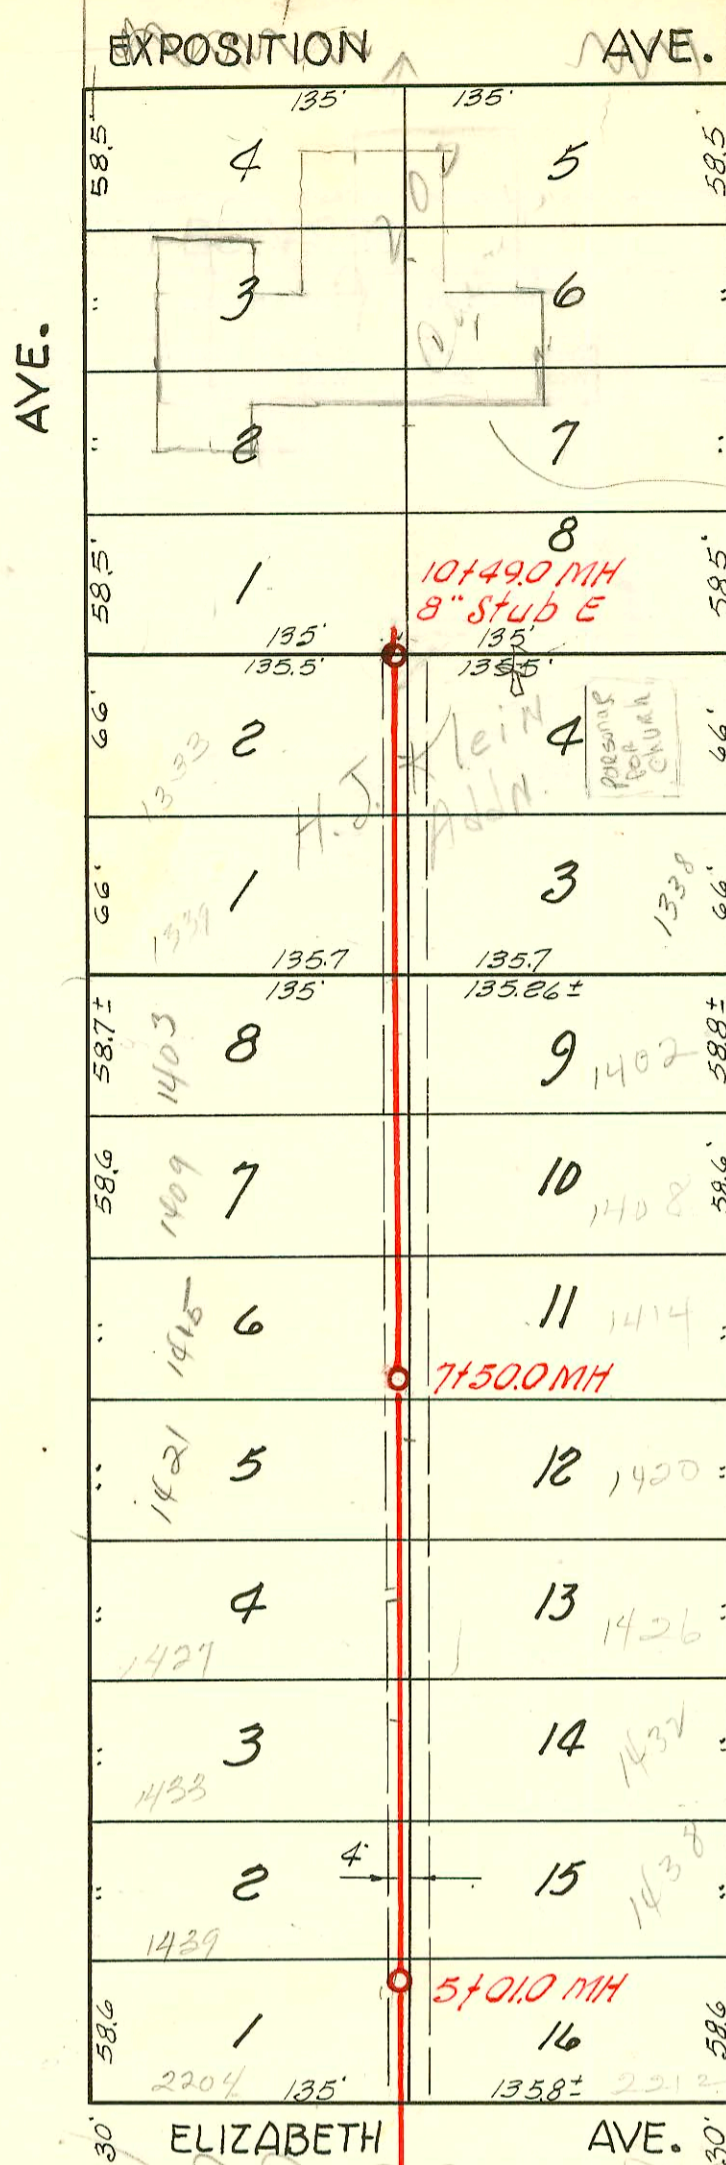 EXPOSITION AVE.
135' 135'
58.5' 4 5 58.5'
200
" 3 6 "
AVE.
" 2 7 "
58.5' 1 8 58.5'
10+49.0 MH
8" Stub E
135' 135'
135.5' 135.5'
66' 2 4 66'
1333
Parsonag
For
Churh
H.J. Klein
Addn.
66' 1 3 66'
1339 1338
135.7 135.7
135' 135.26±
58.7± 1403 8 9 1402 58.8±
58.6 1409 7 10 1408 58.6'
" 1415 6 11 1414 "
7+50.0 MH
" 1421 5 12 1420 "
" 4 13 "
1427 1426
" 3 14 1432 "
1433
4'
" 2 15 1438 "
1439
5+01.0 MH
58.6 1 16 58.6
2204 135' 135.8± 2212
30' ELIZABETH AVE. 30'